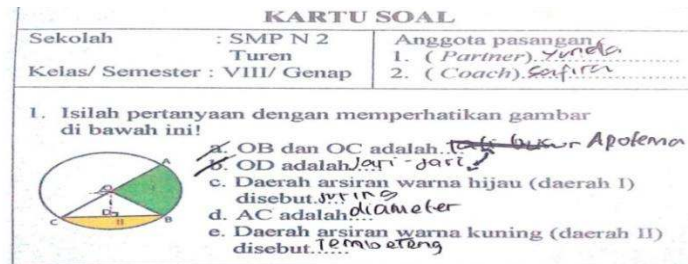 KARTU SOAL
Sekolah : SMP N 2 Turen
Kelas/ Semester : VIII/ Genap
Anggota pasangan
1. ( Partner). Yunda
2. ( Coach). Safira
1. Isilah pertanyaan dengan memperhatikan gambar
di bawah ini!
a. OB dan OC adalah. Tali busur Apotema
b. OD adalah Jari - Jari
c. Daerah arsiran warna hijau (daerah I)
disebut. Juring
d. AC adalah.... diameter
e. Daerah arsiran warna kuning (daerah II)
disebut...... Tembereng
A
O
I
D
C
II
B